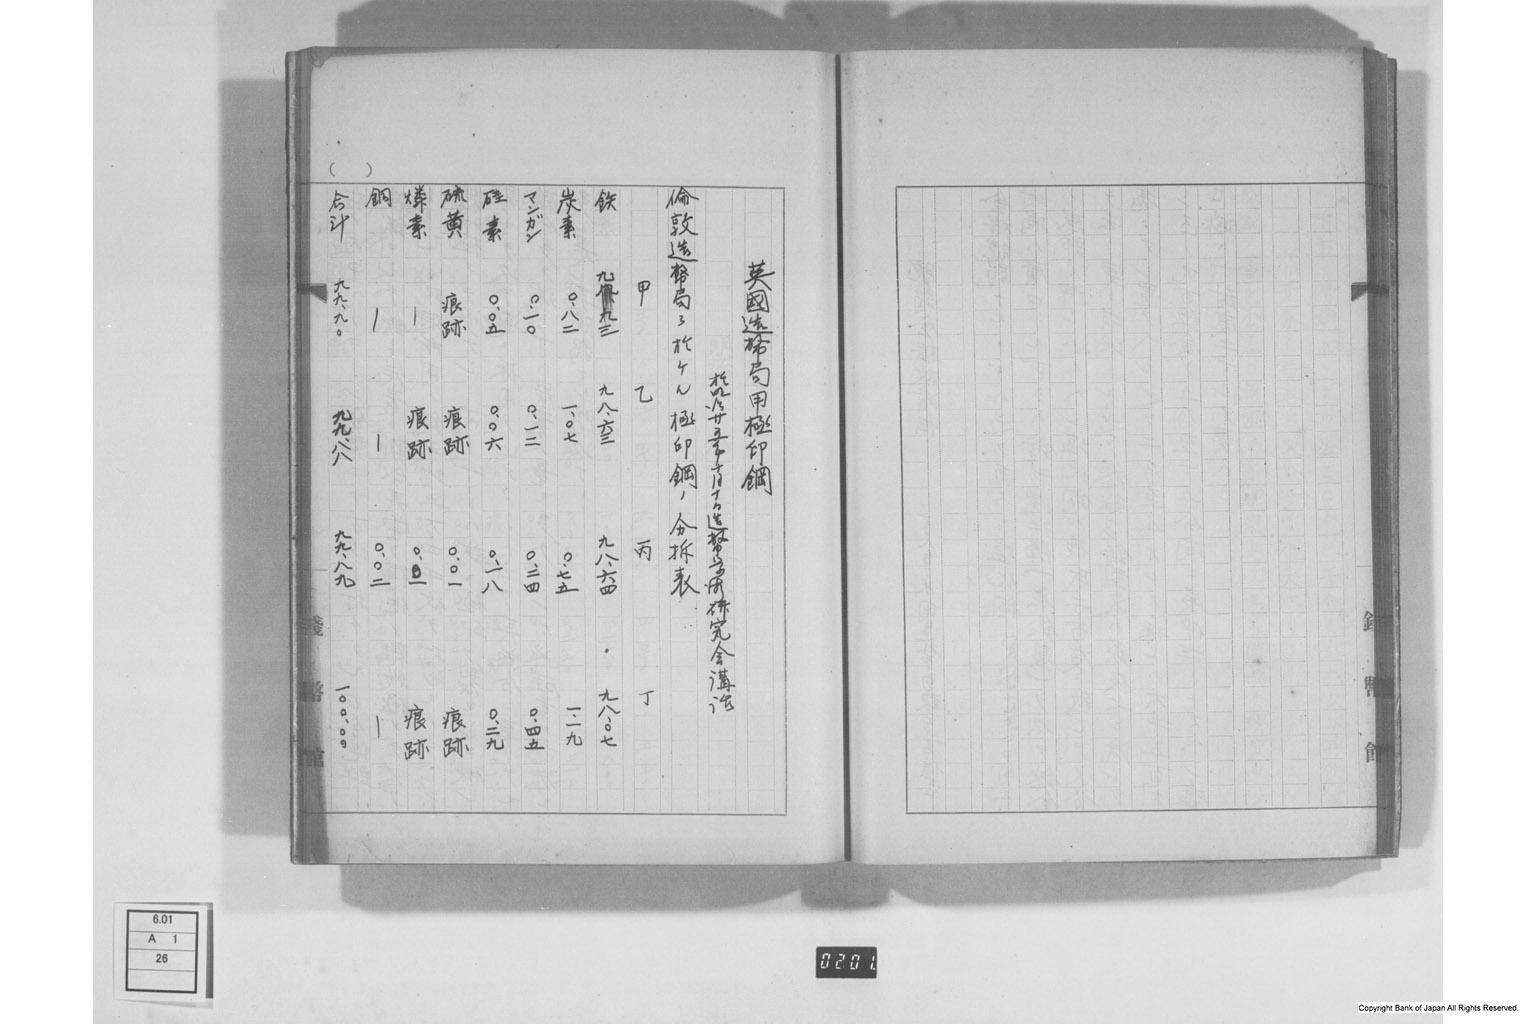 英國造幣局用極印鋼
於明治廿五年十一月十日造幣学術研究会講話
倫敦造幣局ニ於ケル極印鋼ノ分拆表
甲 乙 丙 丁
鉄 九八、六三 九八、六四 九八、〇七
炭素 〇、八二 一、〇七 〇、七五 一、一九
マンガン 〇、一〇 〇、一二 〇、二四 〇、四五
硅素 〇、〇五 〇、〇六 〇、一八 〇、二九
硫黄 痕跡 痕跡 〇、〇一 痕跡
燐素 — 痕跡 痕跡
銅 — — 〇、〇二 —
合計 九九、九〇 九九、八八 九九、八九 一〇〇、〇〇
( )
錢幣館
錢幣館
6.01
A 1
26
0201
Copyright Bank of Japan All Rights Reserved.